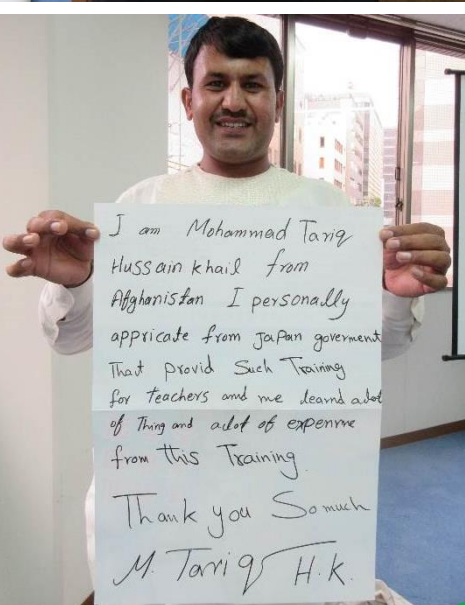 I am Mohammad Tariq
Hussain khail from
Afghanistan I personally
appricate from Japan goverment
That provid Such Training
for teachers and me learnd alot
of Thing and alot of expenrne
from this Training.
Thank you So much
M. Tariq H.K.